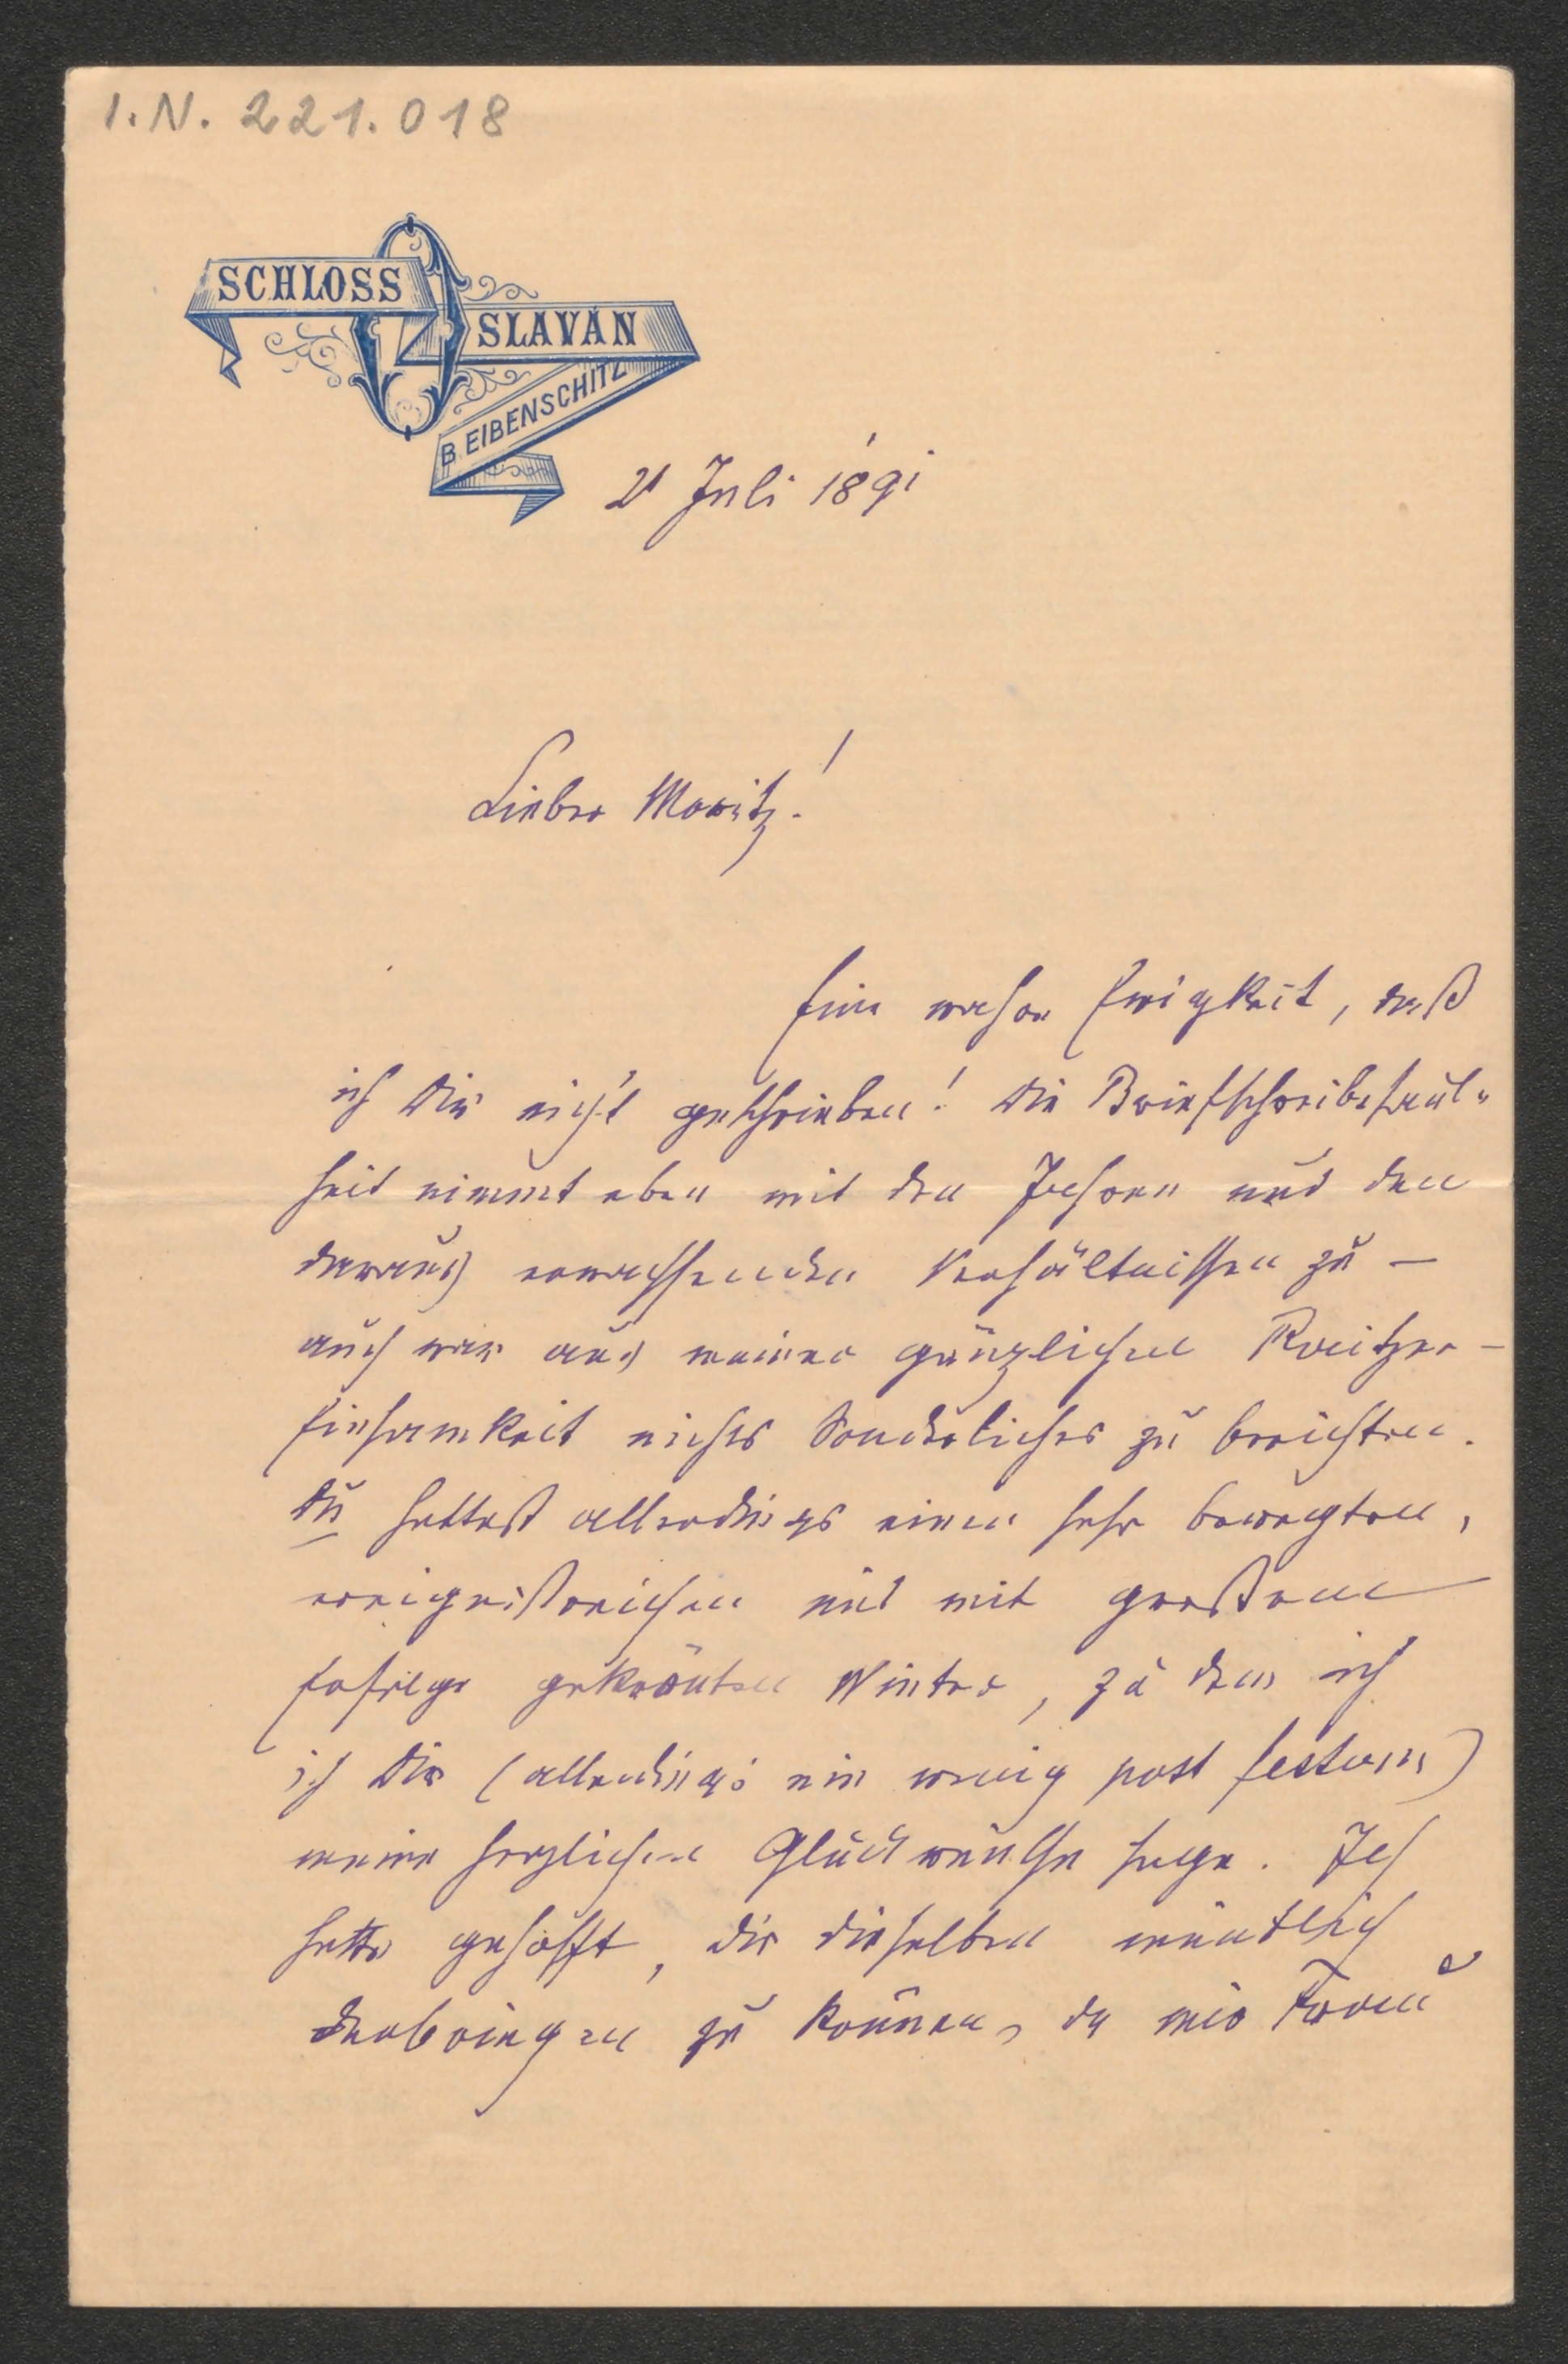 I.N. 221.018
SCHLOSS
OSLAVAN
B. EIBENSCHITZ
21 Juli 1891
Lieber Moritz!
Eine wahre Ewigkeit, daß
ich Dir nicht geschrieben! Die Briefschreibefaul-
heit nimmt eben mit den Jahren und den
daraus erwachsenden Verhältnissen zu –
auch war aus meiner gänzlichen Raitzer-
Einsamkeit nichts Sonderliches zu berichten.
Du hattest allerdings einen sehr bewegten,
ereignißreichen und mit großem
Erfolge gekrönten Winter, zu dem ich
ich Dir (allerdings ein wenig post festum)
meine herzlichen Glückwünsche sage. Ich
hatte gehofft, dir dieselben mündlich
darbringen zu können, da mir Franz